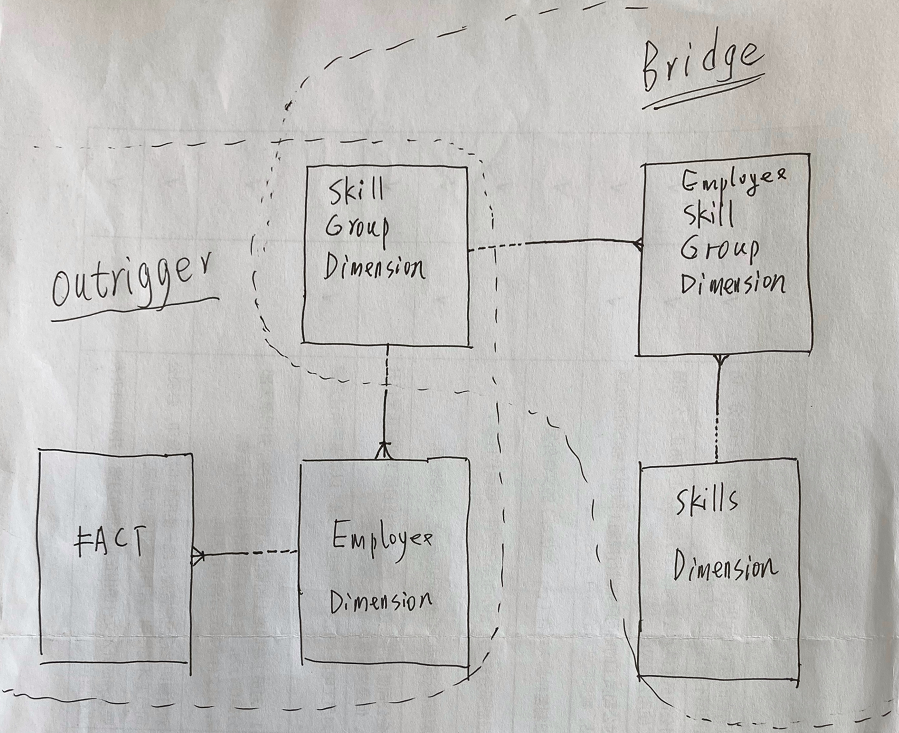 Bridge
Skill
Group
Dimension
Employee
Skill
Group
Dimension
Outrigger
FACT
Employee
Dimension
Skills
Dimension